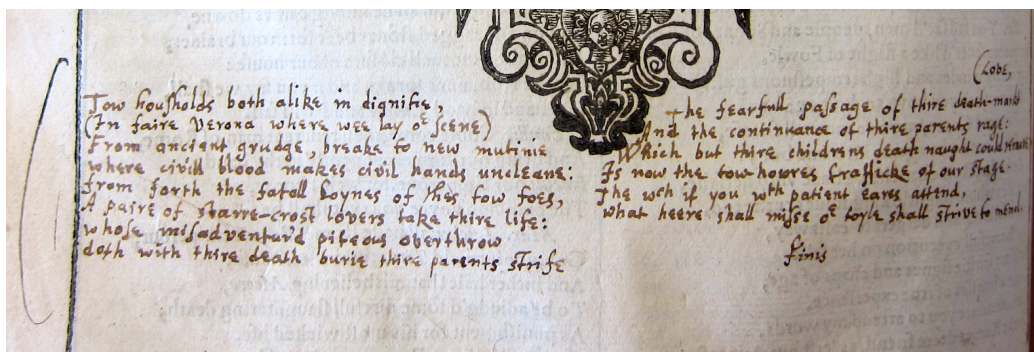 Tow housholds both alike in dignitie,
(In faire Verona where wee lay oe scene)
From ancient grudge, breake to new mutinie
where civill blood makes civil hands uncleane:
from forth the fatall loynes of thes tow foes,
A paire of starre-crost lovers take thire life:
whose misadventur'd piteous overthrow
doth with thire death burie thire parents strife
(love,
The fearfull passage of thire death-markt
And the continuance of thire parents rage:
Which but thire childrens death naught could
Is now the tow-howres traffick of our stage.
The wch if you wth patient eares attend,
what heere shall misse oe toyle shall strive to mend.
finis